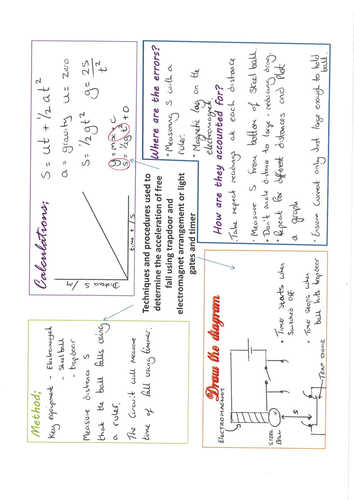 Method;
Key equipment - Electromagnet
- Steel ball
- trapdoor
Measure distance s
that the ball falls using
a ruler.
The circuit will measure
time of fall using timer.
Calculations;
s = ut + 1/2 at²
a = gravity u = zero
s = 1/2 gt² g = 2s/t²
y = mx + c
s = 1/2 gt² + 0
time t / s
Techniques and procedures used to
determine the acceleration of free
fall using trapdoor and
electromagnet arrangement or light
gates and timer
Draw the diagram
ELECTROMAGNET
STEEL
BALL
S
TRAP DOOR
• Timer starts when
switched off
• Timer stops when
ball hits trapdoor
Where are the errors?
• Measuring s with a
ruler.
• Magnetic lag on the
electromagnet
How are they accounted for?
• Take repeat readings at each distance
• Measure s from bottom of steel ball.
• Don't make distance to large - reducing drag.
• Repeat for different distances and plot
a graph
• Ensure current only just large enough to hold
ball.